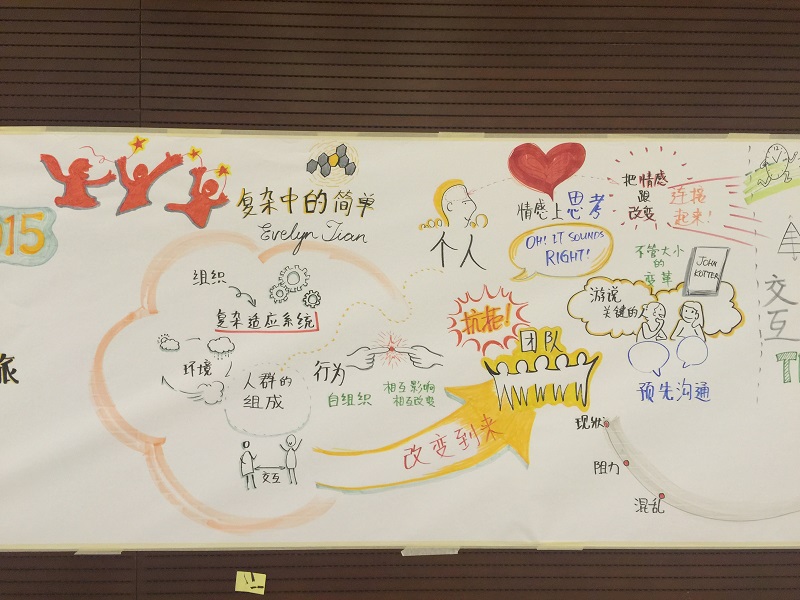 2015
旅
复杂中的简单
Evelyn Tian
组织
复杂适应系统
环境
人群的
组成
行为
自组织
相互影响
相互改变
交互
改变到来
个人
情感上思考
OH! IT SOUNDS
RIGHT!
把情感
跟
改变
连接
起来!
抗拒!
团队
不管大小
的
变革
JOHN
KOTTER
游说
关键的人
预先沟通
现状
阻力
混乱
交
互